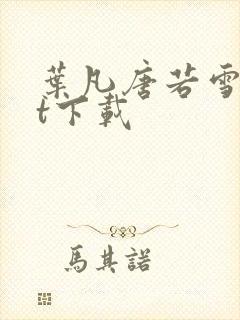 葉凡唐若雪
t下載
馬其諾